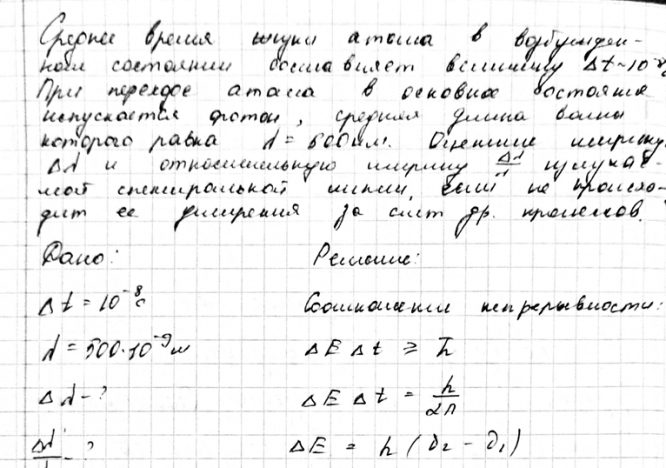 Среднее время жизни атома в возбужден-
ном состоянии составляет величину Δt~10⁻⁸с
При переходе атома в основное состояние
испускается фотон, средняя длина волны
которого равна λ = 500нм. Оцените ширину
Δλ и относительную ширину Δλ/λ излучае-
мой спектральной линии, если не происхо-
дит ее уширения за счет др. процессов.
Дано:
Решение:
Δt = 10⁻⁸с
Соотношение непрерывности:
λ = 500·10⁻⁹м
ΔE Δt ≥ ħ
Δλ - ?
ΔE Δt = h/2π
Δλ/λ - ?
ΔE = h(ν₂ - ν₁)